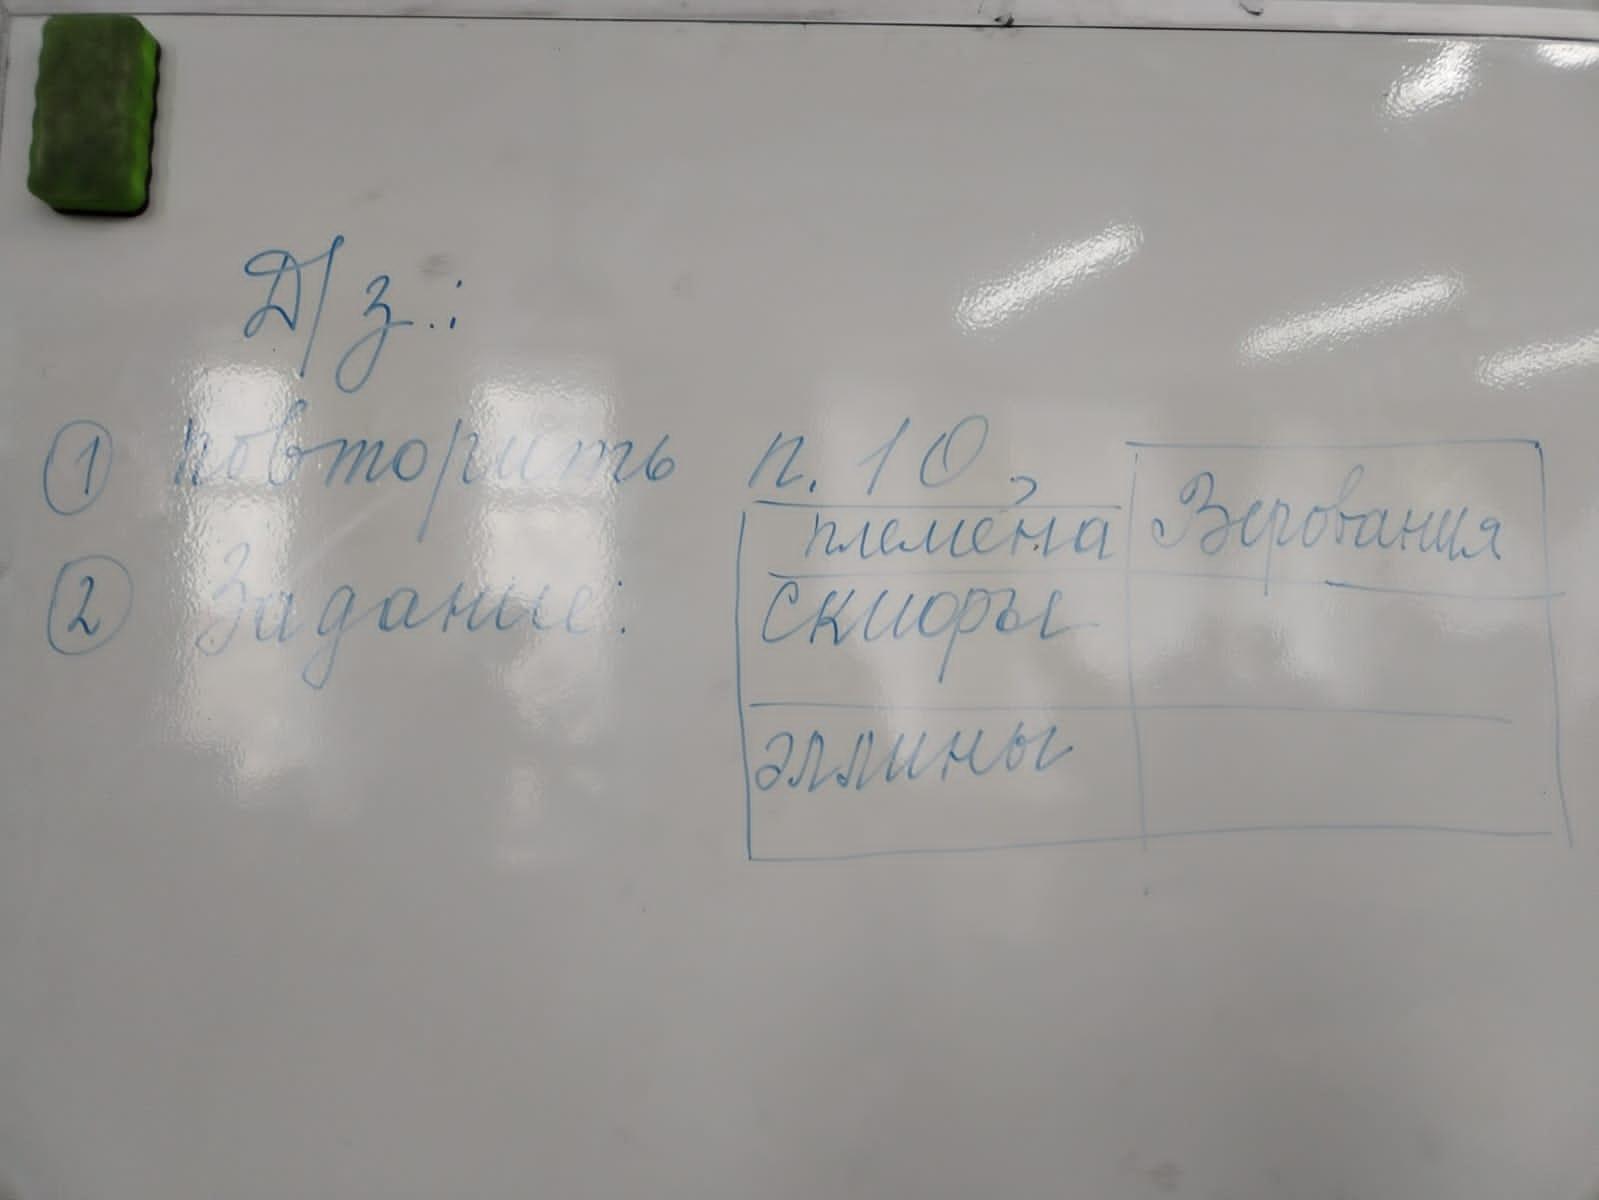 Д/з.:
① повторить п. 10,
② Задание:
племена Верования
скифы
эллины